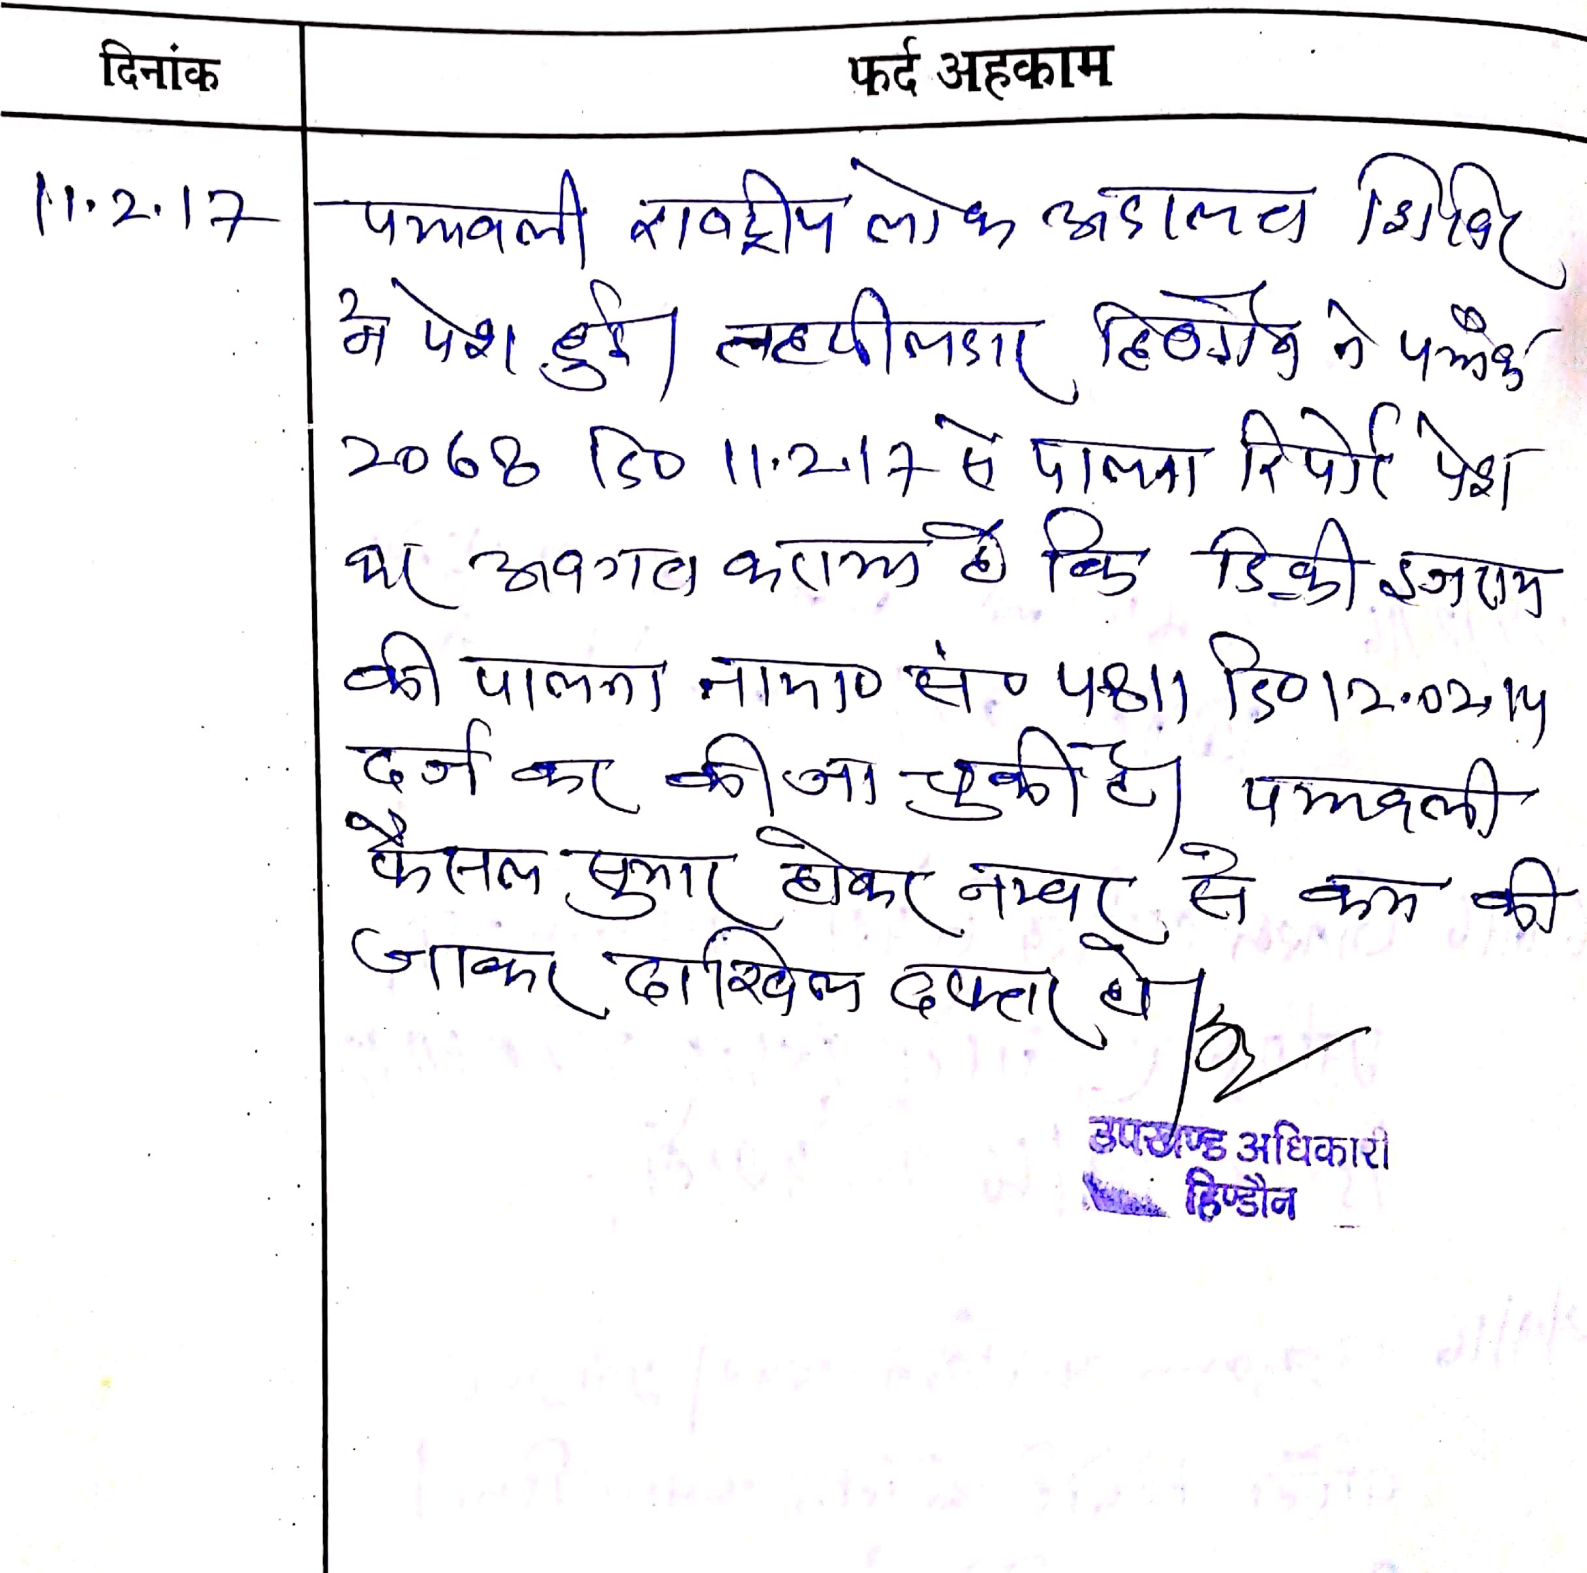 दिनांक फर्द अहकाम
11.2.17 पत्रावली राष्ट्रीय लोक अदालत शिविर
में पेश हुई। तहसीलदार हिण्डौन ने पत्रांक
2068 दि० 11.2.17 से पालना रिपोर्ट पेश
कर अवगत कराया है कि डिक्री इजराय
की पालना नामा० सं० दि० 12.02.14
दर्ज कर की जा चुकी है। पत्रावली
फैसल सुमार होकर नम्बर से कम की
जाकर दाखिल दफ्तर हो।
उपखण्ड अधिकारी
हिण्डौन